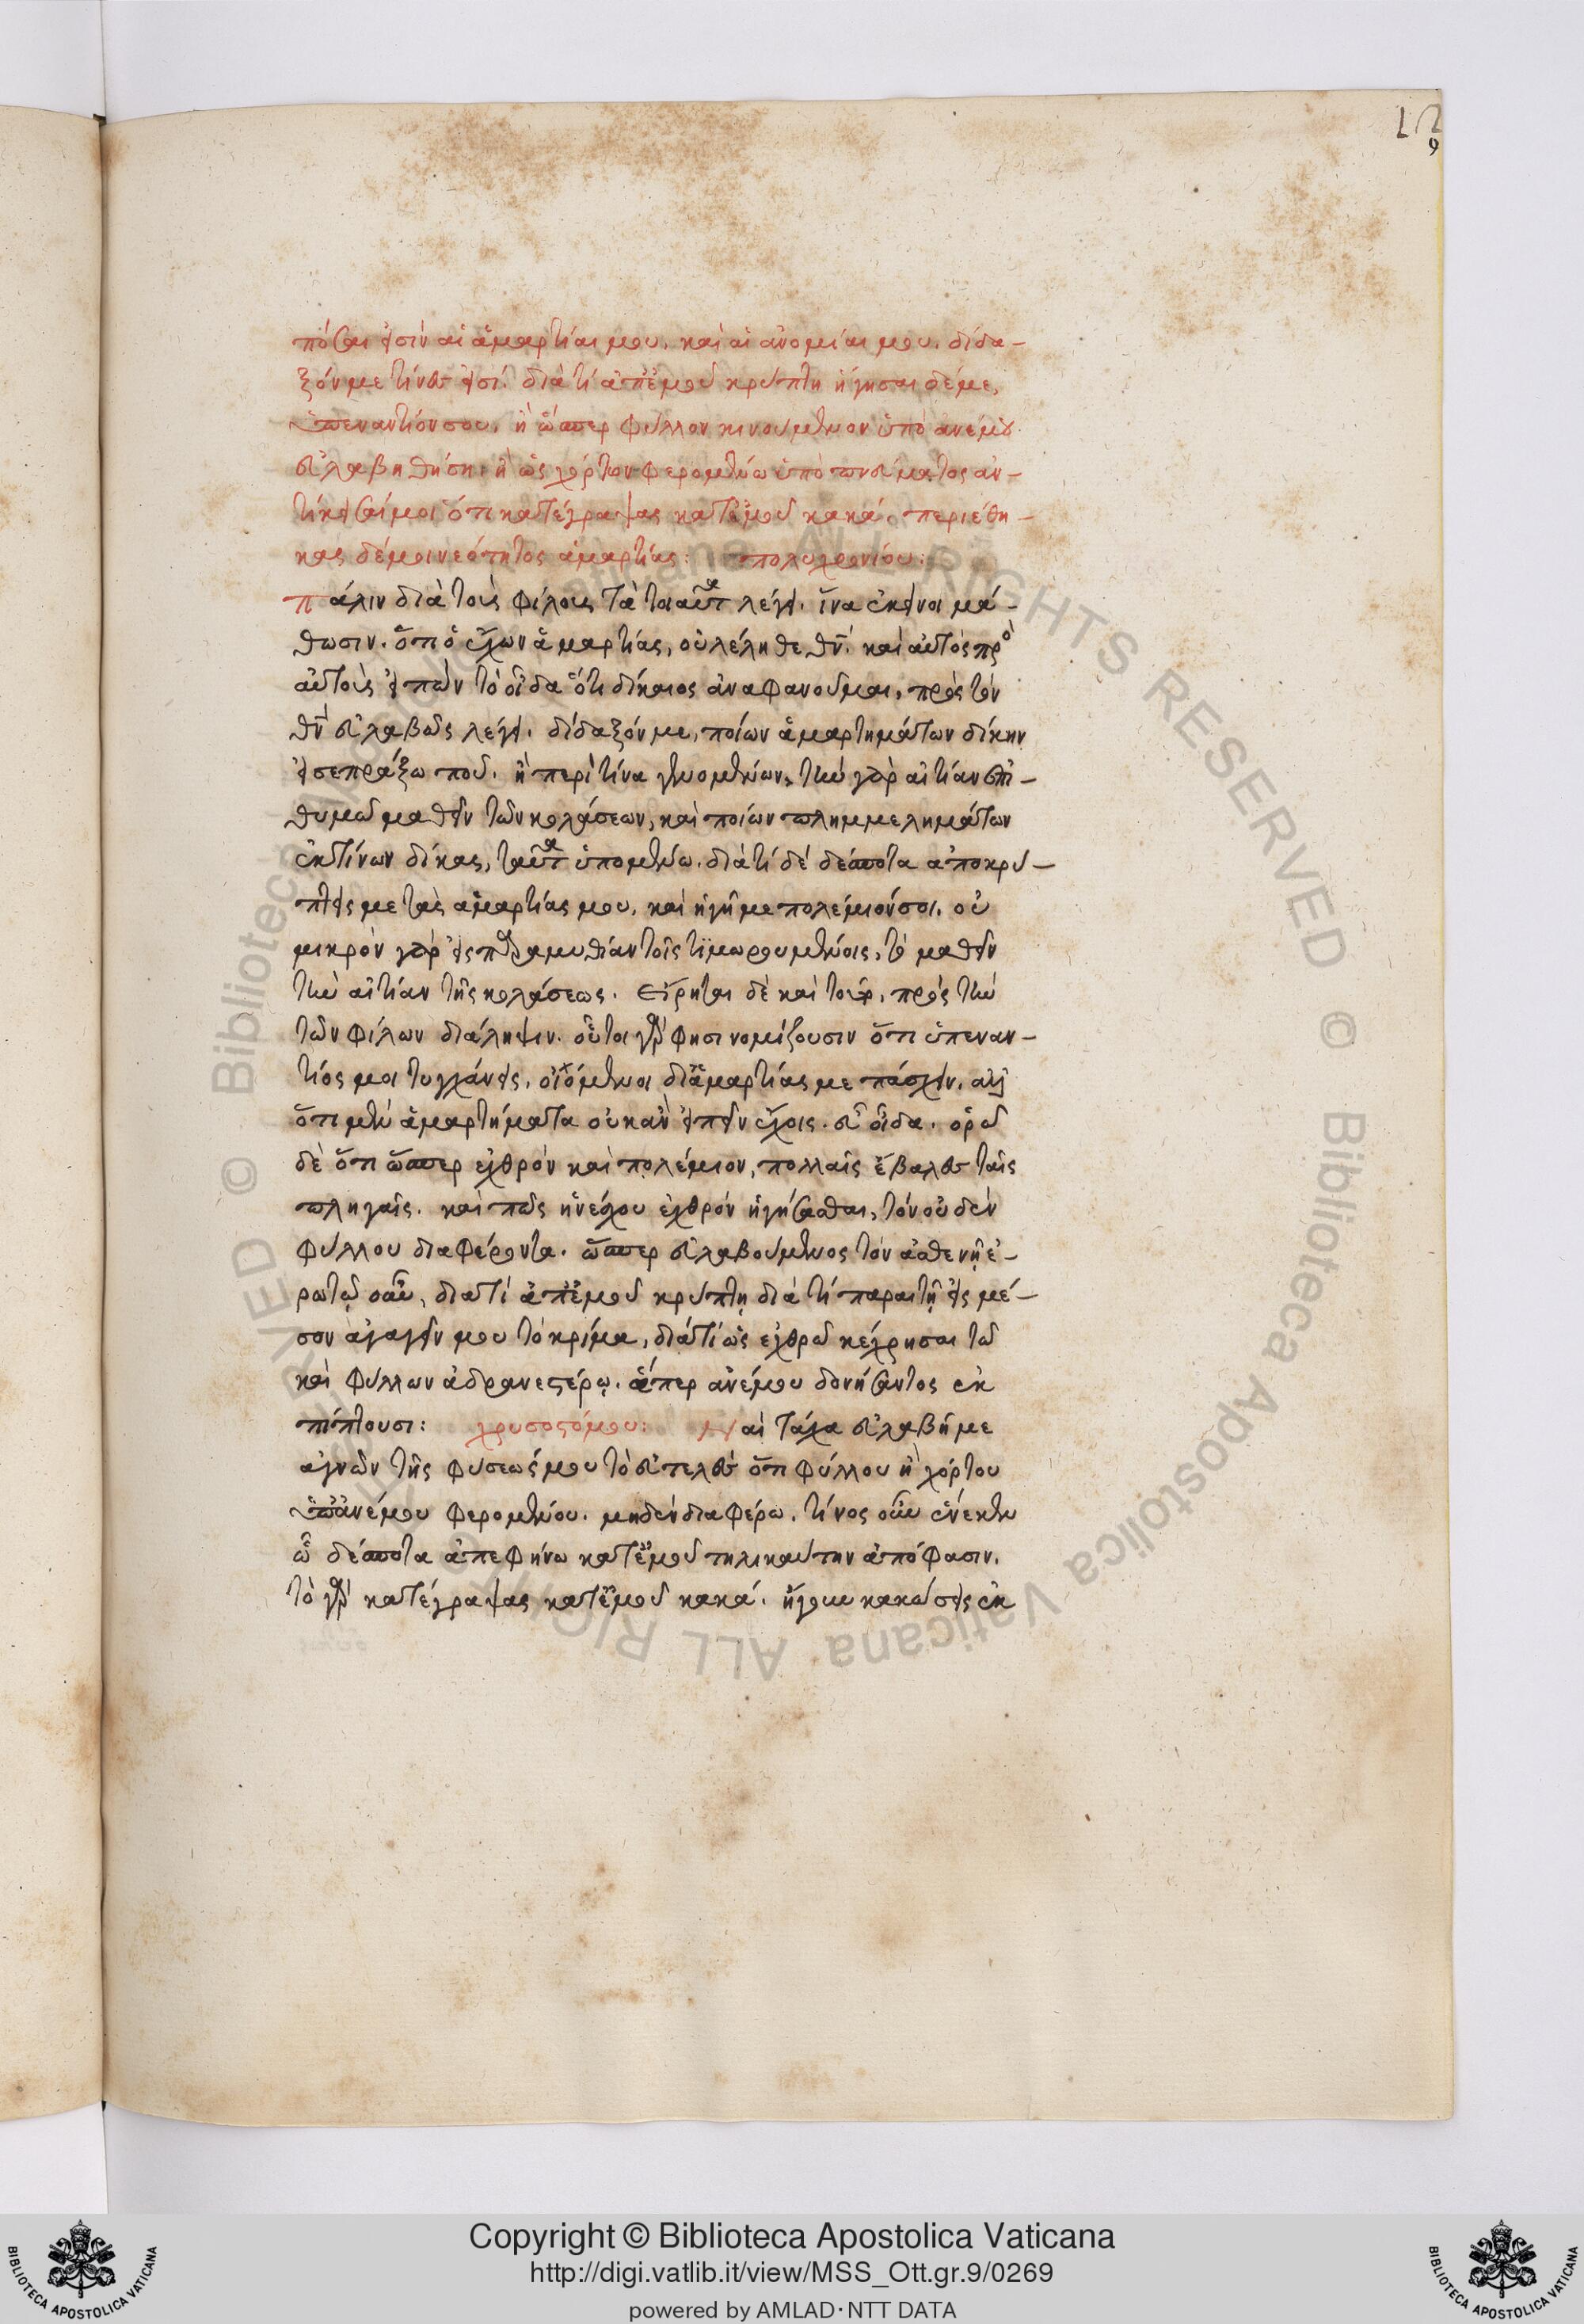 πόσαι εἰσὶν αἱ ἁμαρτίαι μου, καὶ αἱ ἀνομίαι μου. δίδα-
ξόν με τίνες εἰσί. διατί ἀπ' ἐμοῦ κρύπτη ἥγησαι δέ με,
ὑπεναντίον σου. ἢ ὥσπερ φύλλον κινούμενον ὑπὸ ἀνέμου
εὐλαβηθήση. ἢ ὡς χόρτον φερομένω ὑπὸ πνεύματος ἀν-
τίκεισαί μοι ὅτι κατέγραψας κατ' ἐμοῦ κακά. περιέθη-
κας δέ μοι νεότητος ἁμαρτίας: πολυχρονίου:
πάλιν διὰ τοὺς φίλους τὰ τοιαῦτα λέγει. ἵνα ἐκεῖνοι μά-
θωσιν. ὅτι ὁ ἔχων ἁμαρτίας, οὐ λέληθε θν. καὶ αὐτὸς πρὸ
αὐτοὺς εἰπὼν τὸ οἶδα ὅτι δίκαιος ἀναφανοῦμαι, πρὸς τὸν
θν εὐλαβῶς λέγει. δίδαξόν με, ποίων ἁμαρτημάτων δίκην
εἰσεπράξω που. ἢ περὶ τίνα γενομένων. τὴν γὰρ αἰτίαν ἐπι-
θυμῶ μαθεῖν τῶν κολάσεων, καὶ ποίων πλημμελημάτων
ἐκτίνων δίκας, ταῦτα ὑπομένω. διατί δὲ δέσποτα ἀποκρύ-
πτεις με τὰς ἁμαρτίας μου, καὶ ἡγῆ με πολέμιόν σοι. οὐ
μικρὸν γὰρ εἰς παραμυθίαν τοῖς τιμωρουμένοις, τὸ μαθεῖν
τὴν αἰτίαν τῆς κολάσεως. Εἴρηται δὲ καὶ τοῦτο, πρὸς τὴν
τῶν φίλων διάληψιν. οὗτοι γάρ φησι νομίζουσιν ὅτι ὑπεναν-
τίος μοι τυγχάνεις, οἰόμενοι δι' ἁμαρτίας με πάσχειν. ἀλλ'
ὅτι μὲν ἁμαρτήματα οὐκ ἂν εἰπεῖν ἔχοις. εὖ οἶδα. ὁρῶ
δὲ ὅτι ὥσπερ ἐχθρὸν καὶ πολέμιον, πολλαῖς ἔβαλες ταῖς
πληγαῖς. καὶ πῶς ἠνέσχου ἐχθρὸν ἡγήσασθαι, τὸν οὐδὲν
φύλλου διαφέροντα. ὥσπερ εὐλαβούμενος τὸν ἀσθενῆ ἐ-
ρωτῶ σε οὖν, διατί ἀπ' ἐμοῦ κρύπτη διατί παραιτῆ εἰς μέ-
σον ἀγαγεῖν μου τὸ κρίμα, διατί ὡς ἐχθρῶ κέχρησαι τῶ
καὶ φύλλων ἀδρανεστέρω. ἅπερ ἀνέμου δονήσαντος ἐκ
πίπτουσι: χρυσοστόμου: Ναὶ τάχα εὐλαβῆ με
ἀγνοῶν τῆς φύσεώς μου τὸ εὐτελὲς ὅτι φύλλου ἢ χόρτου
ὑπ' ἀνέμου φερομένου. μηδὲν διαφέρω. τίνος οὖν ἕνεκεν
ὦ δέσποτα ἀπεφήνω κατ' ἐμοῦ τηλικαύτην ἀπόφασιν.
τὸ γὰρ κατέγραψας κατ' ἐμοῦ κακά. ἤγουν κακώσεις ἐκ
Copyright © Biblioteca Apostolica Vaticana
http://digi.vatlib.it/view/MSS_Ott.gr.9/0269
powered by AMLAD·NTT DATA